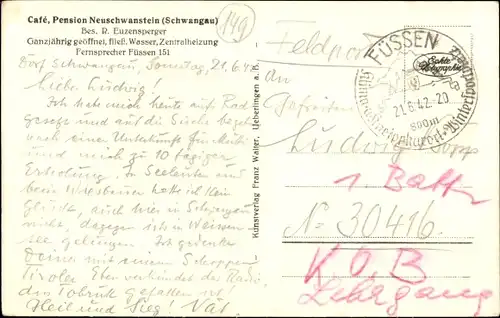 149
Café, Pension Neuschwanstein (Schwangau)
Bes. R. Euzensperger
Ganzjährig geöffnet, fließ. Wasser, Zentralheizung
Fernsprecher Füssen 151
Dorf Schwangau, Sonntag, 21.6.42
Lieber Ludwig!
Ich habe mich heute aufs Rad
gesetzt und auf die Suche begeben
nach einer Unterkunft für
und mich zu 10 tägiger
Erholung. In Seeleuten und
beim Wiesbauer hatte ich kein
Glück, auch hier in Schwangau
nicht, dagegen ist's in Weissen-
see gelungen. Ich gedenke
Deiner mit einem Schoppen
Tiroler. Eben verkündet der Radio,
dass Tobruk gefallen ist.
Heil und Sieg! Vat.
Kunstverlag Franz Walter, Ueberlingen a. B.
Feldpost
FÜSSEN
21.6.42.-20
800m
Wintersport
Echte Photographie
An
Gefreiten
Ludwig
1. Batt.
No 30416
K.O.B
Lehrgang